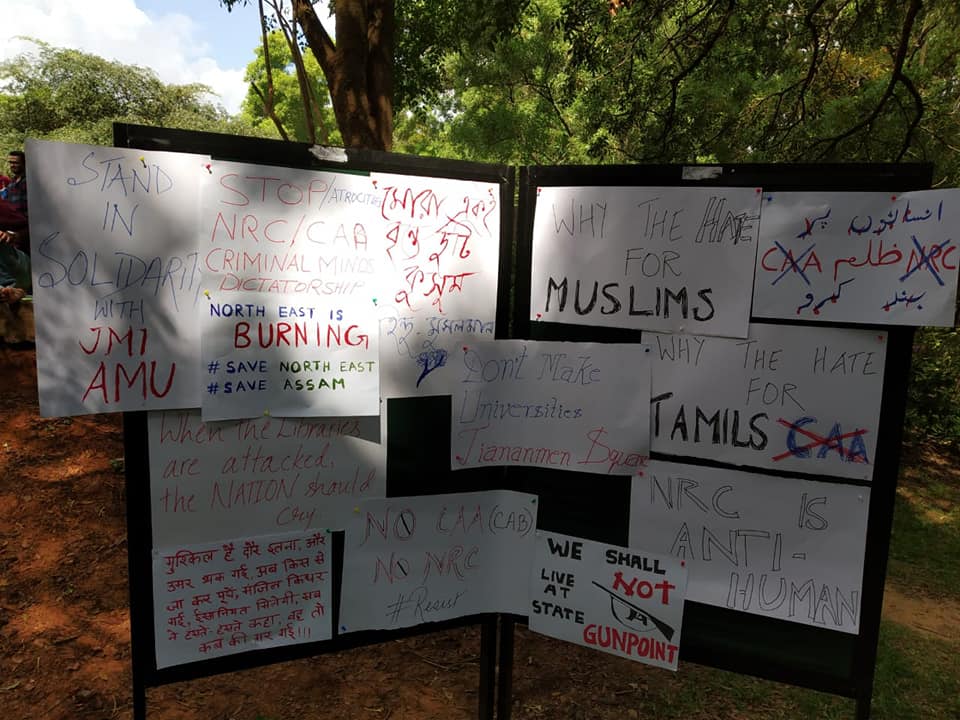 STAND
IN
SOLIDARITY
WITH
JMI
AMU
STOP/ATROCITIES
NRC/CAA
CRIMINAL MINDS
DICTATORSHIP
NORTH EAST IS
BURNING
#SAVE NORTH EAST
#SAVE ASSAM
মোরা একই
বৃন্ত দুটি
কুসুম
হিন্দু মুসলমান
WHY THE HATE
FOR
MUSLIMS
انسانوں پر
CAA ظلم NRC
بند کرو
When the Libraries
are attacked,
the NATION should
cry
Don't Make
Universities
Tiananmen Square
WHY THE HATE
FOR
TAMILS CAA
मुश्किल है दौर इतना, और
उमर थक गई, अब किस से
जा कर पूछें, मंजिल किधर
गई, इंसानियत मिलेगी, सब
ने हंसते-हंसते कहा, वह तो
कब की मर गई!!!
NO CAA (CAB)
NO NRC
#Resist
WE SHALL
NOT
LIVE
AT
STATE
GUNPOINT
NRC IS
ANTI-
HUMAN